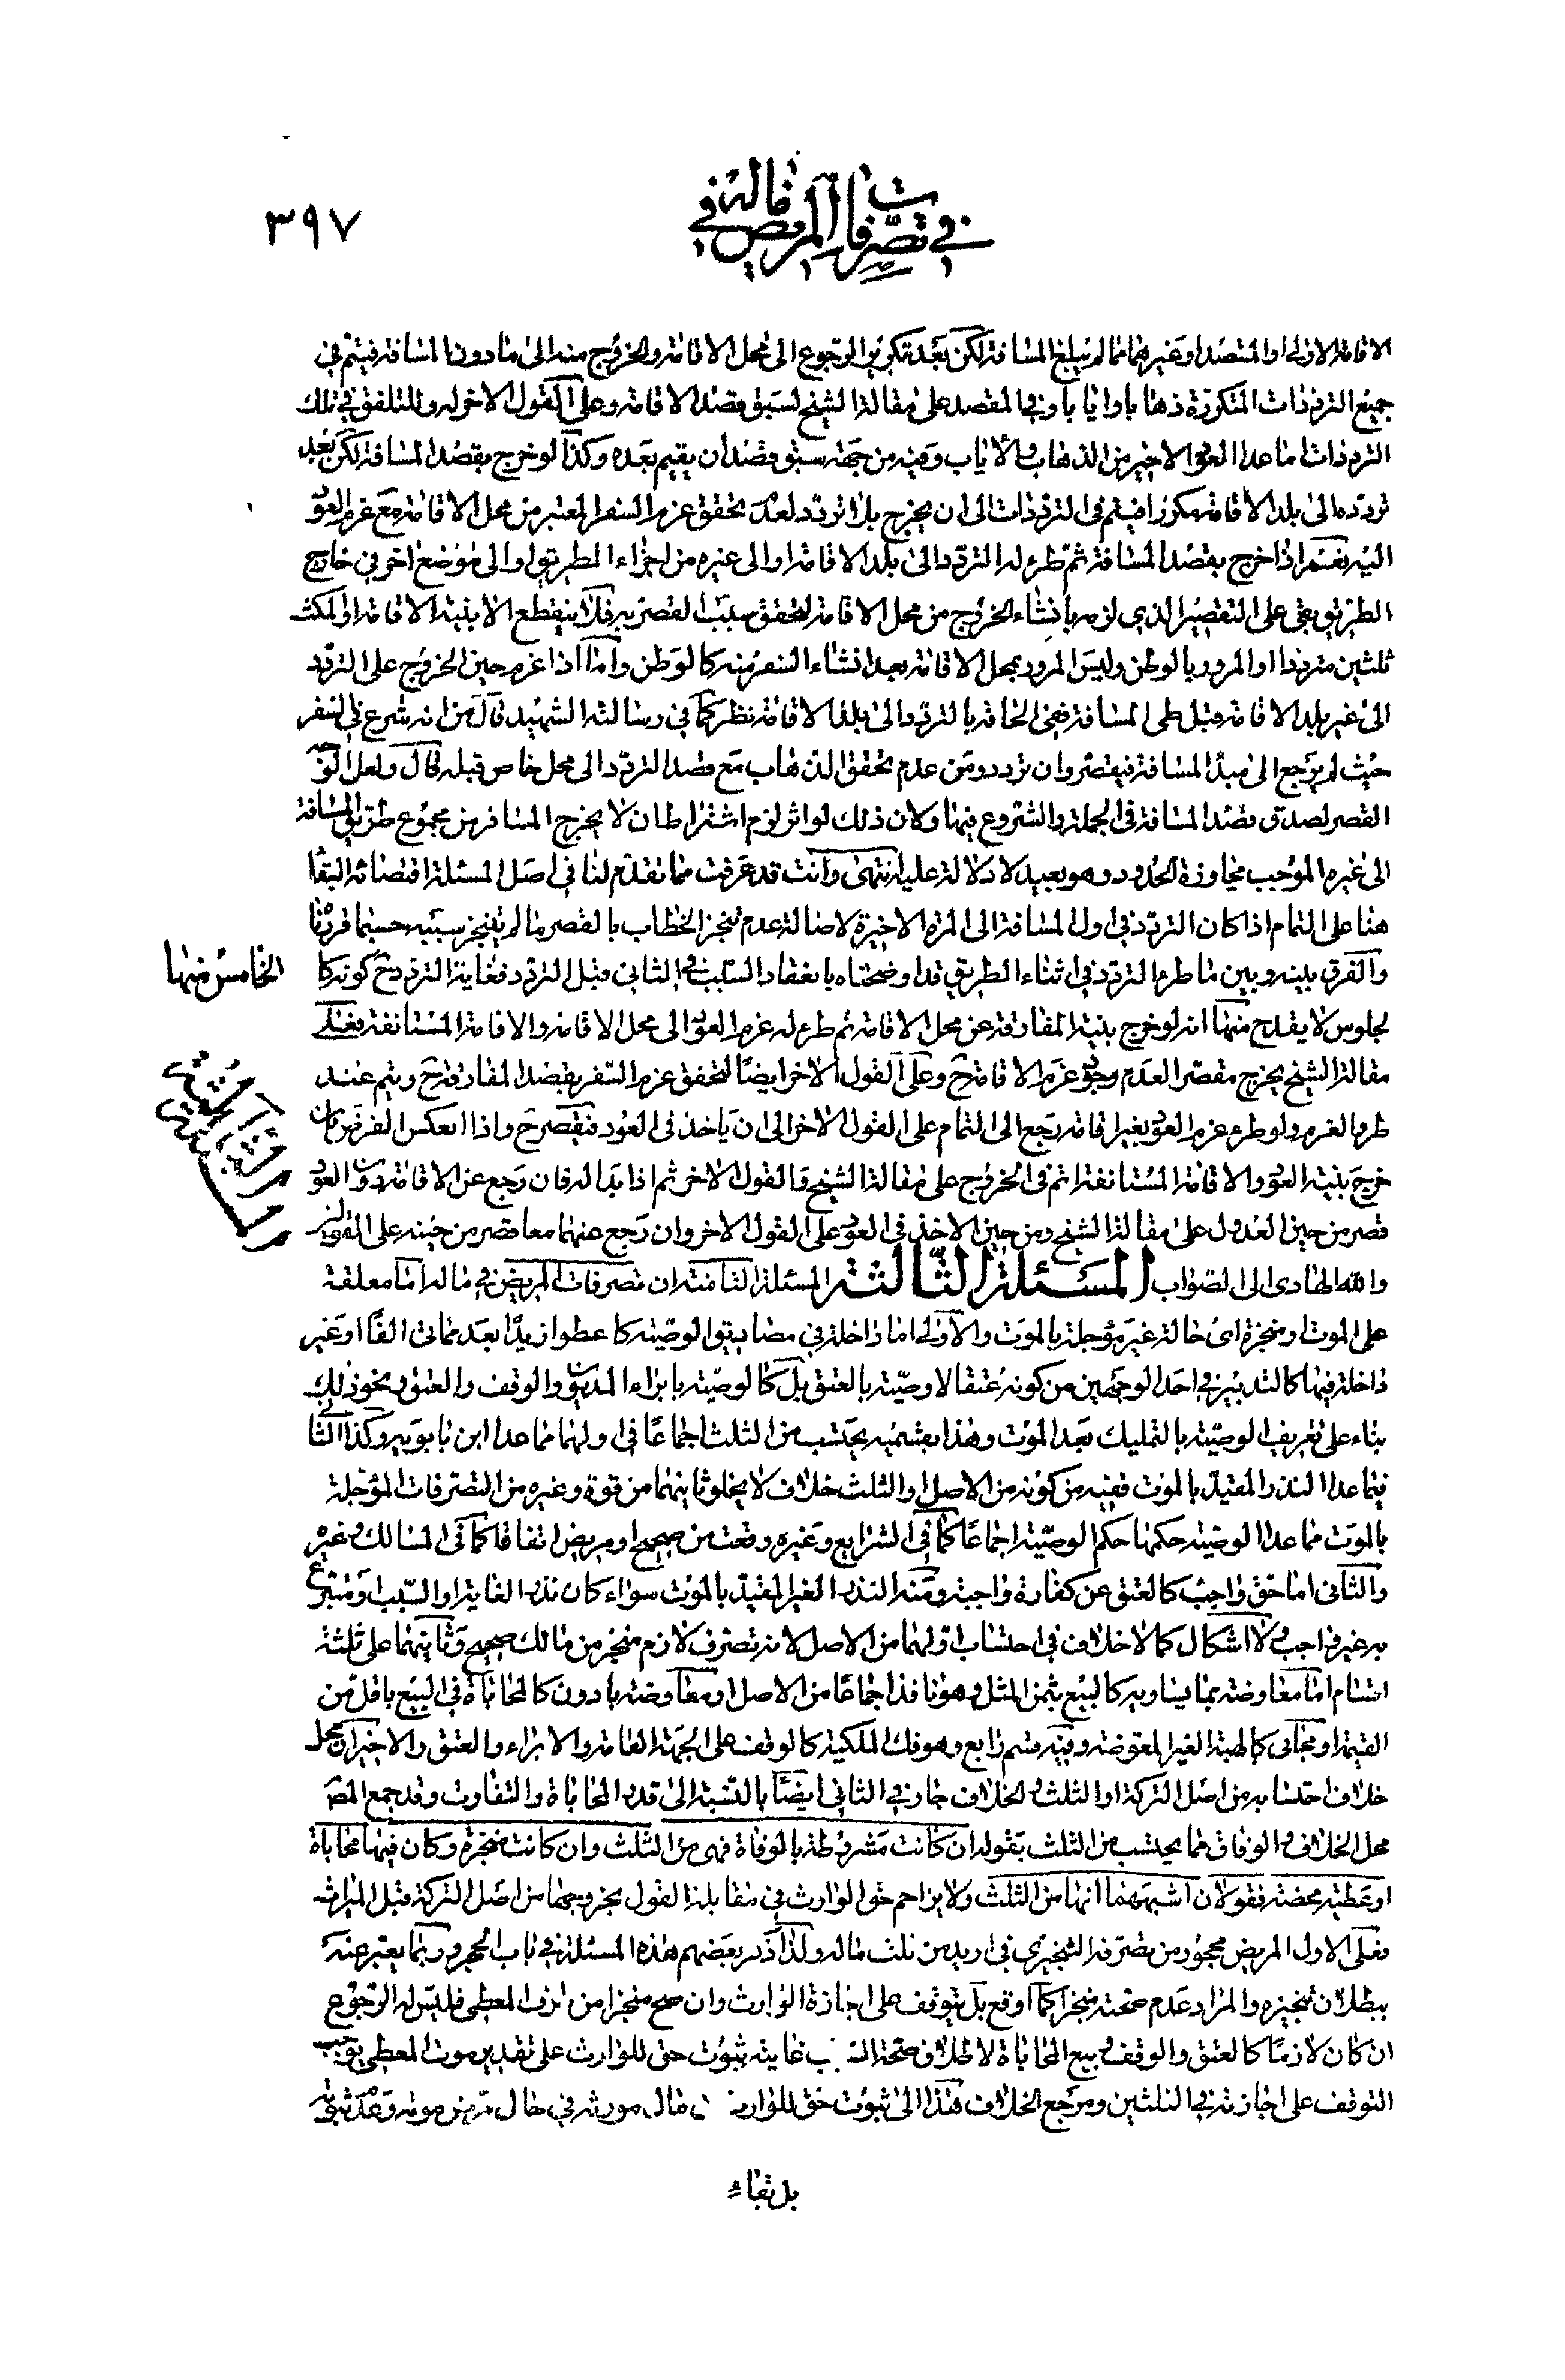 في تصرفات المريض في ماله
٣٩٧
الاقامة الاولى او المقصد او غيرهما مما لم يبلغ المسافة لكن بعد تكرير الرجوع الى محل الاقامة والخروج منه الى ما دون المسافة فيتم في
جميع الترددات المتكررة ذهابا وايابا وفي المقصد على مقالة الشيخ لسبق قصد الاقامة وعلى القول الاخر له وللتلفق في تلك
الترددات ما عدا العود الاخير من الذهاب والاياب وفيه من جهة سبق قصد ان يقيم بعده وكذا لو خرج بقصد المسافة لكن بعد
تردده الى بلد الاقامة مكررا فيتم في الترددات الى ان يخرج بلا تردد لعدم تحقق عزم السفر المعتبر من محل الاقامة مع عزم العود
اليه نعم اذا خرج بقصد المسافة ثم طرء له التردد الى بلد الاقامة او الى غيره من اجزاء الطريق او الى موضع اخر في خارج
الطريق بقي على التقصير الذي لزمه بانشاء الخروج من محل الاقامة لتحقق سبب القصر به فلا ينقطع الا بنية الاقامة او المكث
ثلثين مترددا او المرور بالوطن وليس المرور بمحل الاقامة بعد انشاء السفر منه كالوطن واما اذا عزم حين الخروج على التردد
الى غير بلد الاقامة قبل طي المسافة ففي الحاقه بالتردد الى بلد الاقامة نظر كما في رسالة الشهيد قال من انه شرع في السفر
حيث لم يرجع الى مبدأ المسافة فيقصر وان تردد ومن عدم تحقق الذهاب مع قصد التردد الى محل خاص قبله قال ولعل الوجه
القصر لصدق قصد المسافة في الجملة والشروع فيها وكان ذلك لو اثر لزم اشتراط ان لا يخرج المسافر من مجموع طريق المسافة
الى غيره الموجب مجاوزة الحدود وهو بعيد لا دلالة عليه انتهى وانت قد عرفت مما تقدم لنا في اصل المسئلة اقتضائه البقاء
هنا على التمام اذا كان التردد في اول المسافة الى المرة الاخيرة لاصالة عدم تنجز الخطاب بالقصر ما لم يتنجز سببه حسبما قررنا
والفرق بينه وبين ما طرء التردد في اثناء الطريق قد اوضحناه بانعقاد السبب في الثاني قبل التردد فغاية التردد ح كونه كا
الخامس منها
لجلوس لا يقدح منها انه لو خرج بنية المفارقة عن محل الاقامة ثم طرء له عزم العود الى محل الاقامة والاقامة المستانفة فعلى
مقالة الشيخ يخرج مقصرا لعدم وجود عزم الاقامة ح وعلى القول الاخر ايضا لتحقق عزم السفر بقصد المفارقة ح ويتم عند
طرو العزم ولو طرء عزم العود بغير اقامة رجع الى التمام على القول الاخر الى ان ياخذ في العود فيقصر ح واذا انعكس الفرض بان
خرج بنية العود والاقامة المستانفة اتم في الخروج على مقالة الشيخ والقول الاخر ثم اذا بدا له فان رجع عن الاقامة دون العود
قصر من حين العدول على مقالة الشيخ ومن حين الاخذ في العود على القول الاخر وان رجع عنهما معا قصر من حينه على القولين
والله الهادي الى الصواب المسئلة الثالثة المسئلة الثامنة ان تصرفات المريض في ماله اما معلقة
على الموت او منجزة اي حالة غير مؤجلة بالموت والاولى اما داخلة في مصاديق الوصية كاعطوا زيدا بعد مماتي الفا او غير
داخلة فيها كالتدبير في احد الوجهين من كونه عتقا لا وصية بالعتق بل كالوصية بابراء المديون والوقف والعتق ونحو ذلك
بناء على تعريف الوصية بالتمليك بعد الموت وهذا بقسميه يحتسب من الثلث اجماعا في اولهما مما عدا ابن بابويه وكذا الثا
فيما عدا النذر المقيد بالموت ففيه من كونه من الاصل او الثلث خلاف لا يخلو ثانيهما من قوة وغيره من التصرفات المؤجلة
بالموت مما عدا الوصية حكمها حكم الوصية اجماعا كما في الشرايع وغيره وقعت من صحيح او مريض اتفاقا كما في المسالك وغيره
والثاني اما حق واجب كالعتق عن كفارة واجبة ومنه النذر الغير المقيد بالموت سواء كان نذر الغاية او السبب او متبرع
به غير واجب ولا اشكال كما لا خلاف في احتساب اولهما من الاصل لانه تصرف لازم منجز من مالك صحيح وثانيهما على ثلثة
اقسام اما معاوضة بما يساويه كالبيع بثمن المثل وهو نافذ اجماعا من الاصل او معاوضة بادون كالمحاباة في البيع باقل من
القيمة او مجاني كالهبة الغير المعوضة وفيه قسم رابع وهو فك الملكية كالوقف على الجهة العامة والابراء والعتق والاخيران محل
خلاف احتسابه من اصل التركة او الثلث والخلاف جار في الثاني ايضا بالنسبة الى قدر المحاباة والتفاوت وقد جمع المصـ
محل الخلاف والوفاق مما يحتسب من الثلث بقوله ان كانت مشروطة بالوفاة فهي من الثلث وان كانت منجزة وكان فيها محاباة
او عطية محضة فقولان اشبههما انها من الثلث ولا يزاحم حق الوارث في مقابلة القول بخروجها من اصل التركة قبل الميراث
فعلى الاول المريض محجور من تصرفه التنجيزي في ازيد من ثلث ماله ولذا ذكر بعضهم هذه المسئلة في باب الحجر وربما يعبر عنه
ببطلان تنجيزه والمراد عدم صحته منجزا كما اوقع بل يتوقف على اجازة الوارث وان صح منجزا من طرف المعطي فليس له الرجوع
ان كان لازما كالعتق والوقف وبيع المحاباة لاطلاق صحة غايته ثبوت حق للوارث على تقدير موت المعطي يوجب
التوقف على اجازته في الثلثين ومرجع الخلاف هذا الى ثبوت حق للوارث مال مورثه في حال مرض موته وعدم ثبوته
بل بقاء